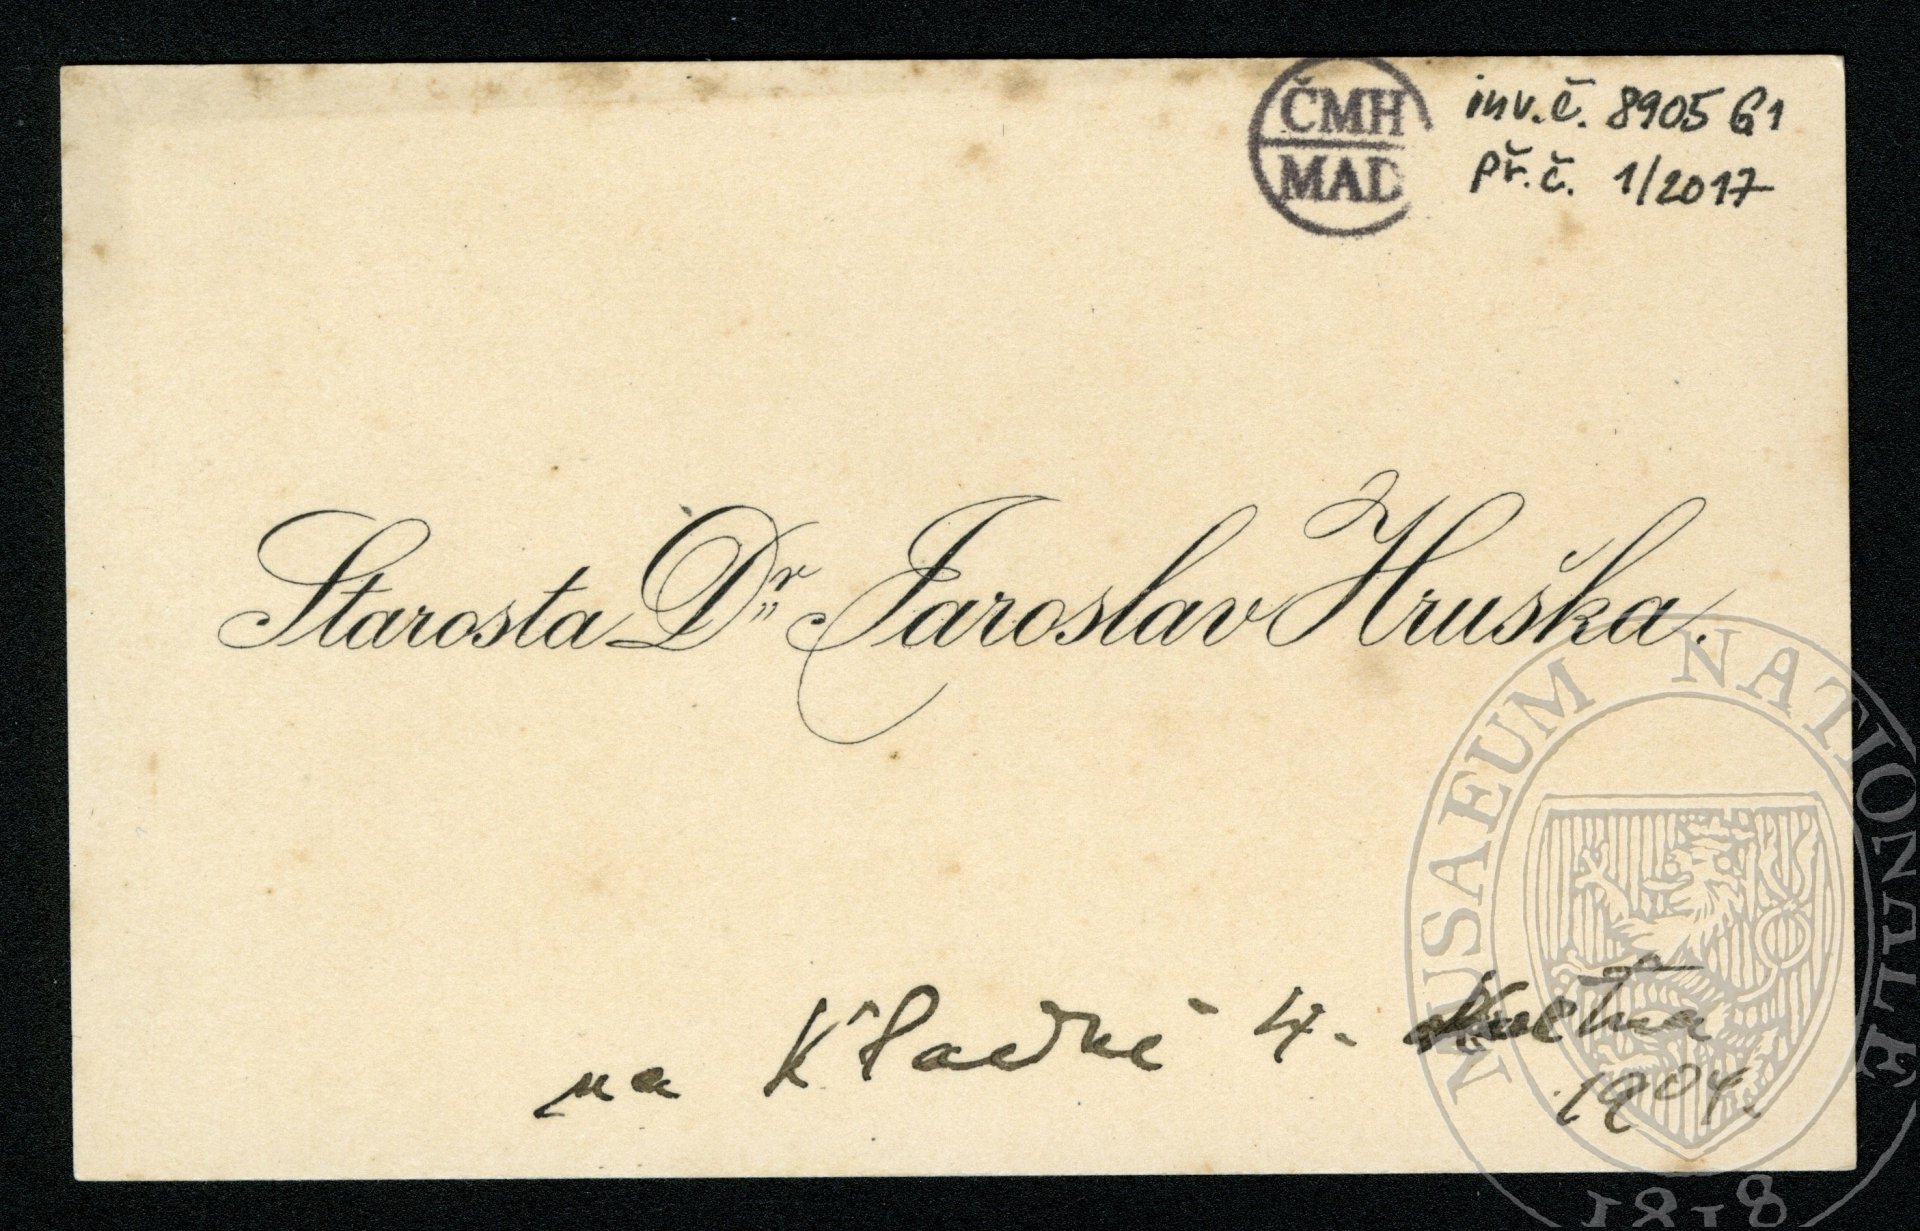 ČMH
MAD
inv.č. 8905 G1
př.č. 1/2017
Starosta Dr. Jaroslav Hruška.
na Kladně 4. Května
1904.
MUSAEUM NATIONALE
1818